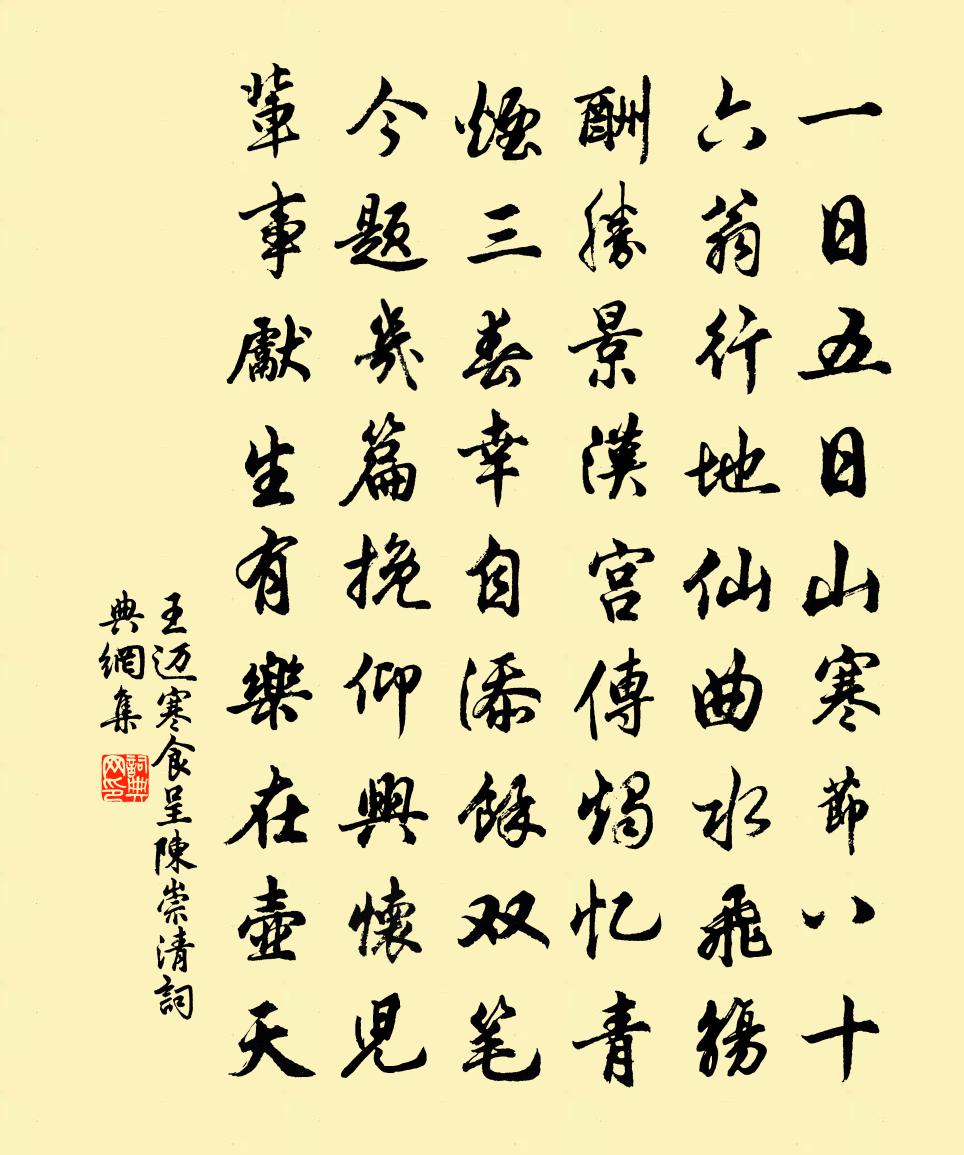 一日五日山寒節八十
六翁行地仙曲水飛觴
酬勝景漢宫傳燭忆青
煙三春幸自添餘双笔
今题幾篇挽仰興懷児
輩事獻生有樂在壺天
王迈寒食呈陳崇清詞
典網集
詞典网印